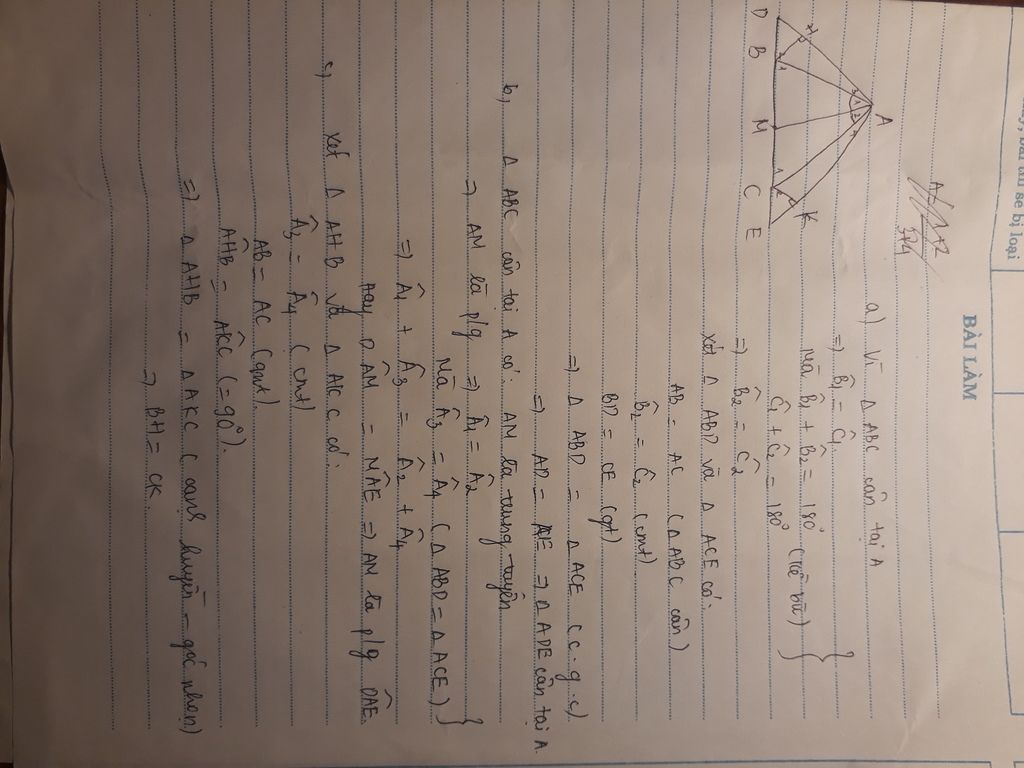 bài ăn sẽ bị loại
BÀI LÀM
A
H
K
D B M C E
a) Vì Δ ABC cân tại A
⇒ B̂1 = Ĉ1
Mà B̂1 + B̂2 = 180°
Ĉ1 + Ĉ2 = 180° (kề bù) }
⇒ B̂2 = Ĉ2
Xét Δ ABD và Δ ACE có:
AB = AC (Δ ABC cân)
B̂2 = Ĉ2 (cmt)
BD = CE (gt)
⇒ Δ ABD = Δ ACE (c.g.c)
⇒ AD = AE ⇒ Δ ADE cân tại A.
b, Δ ABC cân tại A có: AM là trung tuyến
⇒ AM là p/g ⇒ Â1 = Â2
Mà Â3 = Â4 (Δ ABD = Δ ACE) }
⇒ Â1 + Â3 = Â2 + Â4
hay DÂM = MÂE ⇒ AM là p/g DÂE
c, Xét Δ AHB và Δ AKC có:
Â3 = Â4 (cmt)
AB = AC (cmt).
AĤB = AK̂C (=90°).
⇒ Δ AHB = Δ AKC (cạnh huyền - góc nhọn)
⇒ BH = CK.